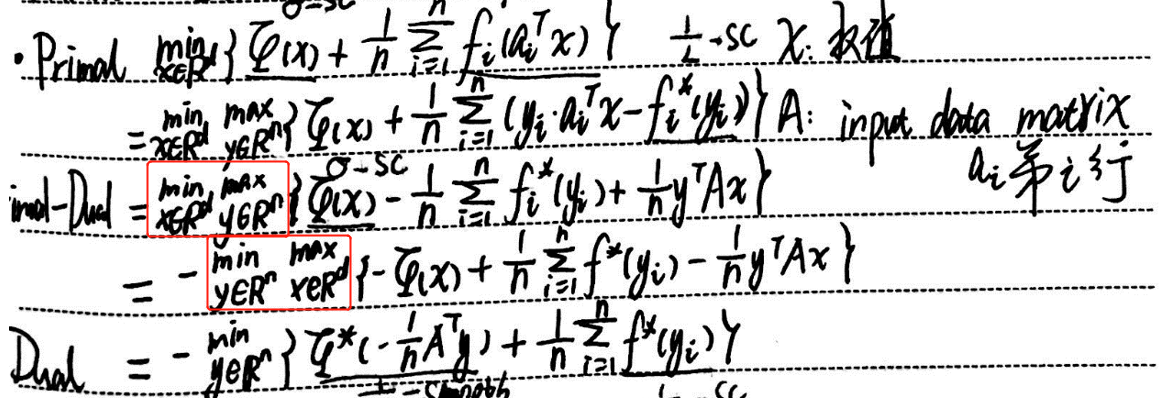 σ-sc
· Primal min x∈R^d { Ψ(x) + 1/n Σ_{i=1}^n f_i(a_i^T x) } 1/L-sc x: 权值
= min x∈R^d max y∈R^n { Ψ(x) + 1/n Σ_{i=1}^n (y_i · a_i^T x - f_i^*(y_i)) } A: input data matrix
σ-sc a_i 第 i 行
imal-Dual = min x∈R^d max y∈R^n { Ψ(x) - 1/n Σ_{i=1}^n f_i^*(y_i) + 1/n y^T A x }
= - min y∈R^n max x∈R^d { -Ψ(x) + 1/n Σ_{i=1}^n f^*(y_i) - 1/n y^T A x }
Dual = - min y∈R^n { Ψ^*(-1/n A^T y) + 1/n Σ_{i=1}^n f^*(y_i) }
-smooth -sc